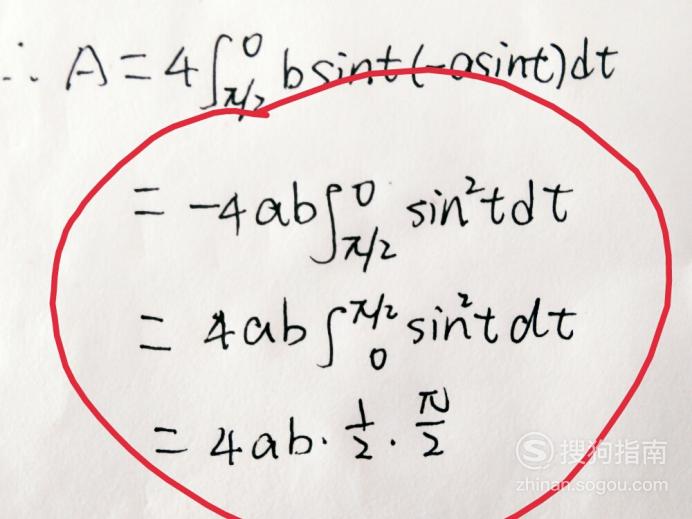 ∴ A = 4∫_{π/2}^{0} b sint (-a sint) dt
= -4ab∫_{π/2}^{0} sin²t dt
= 4ab∫_{0}^{π/2} sin²t dt
= 4ab · 1/2 · π/2
S 搜狗指南
zhinan.sogou.com